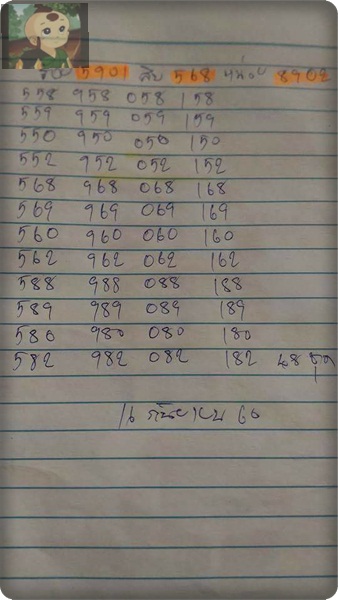 ร้อย 5901 สิบ 568 หน่วย 8902
558 958 058 158
559 959 059 159
550 950 050 150
552 952 052 152
568 968 068 168
569 969 069 169
560 960 060 160
562 962 062 162
588 988 088 188
589 989 089 189
580 980 080 180
582 982 082 182 48 ชุด
16 กันยายน 60